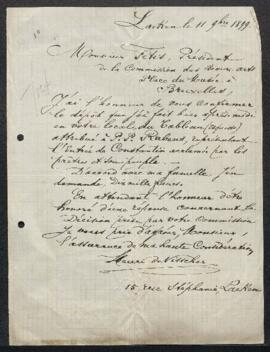 Laeken le 11 9bre 1899
Monsieur Fétis, Président
de la Commission des Beaux arts
Place du Musée à
Bruxelles,
J'ai l'honneur de vous confirmer
le dépot que j'ai fait hier après midi
en votre local, du Tableau
attribué à P.P. Rubens, représentant
l'Entrée de Constantin acclamé par les
prêtres et son peuple.
D'accord avec ma famille j'en
demande dix mille francs.
En attendant l'honneur d'être
honoré d'une réponse concernant la
Décision prise par votre Commission
Je vous prie d'agréer, Monsieur,
l'assurance de ma haute Considération
Henri de Visscher
15 rue Stéphanie Laeken